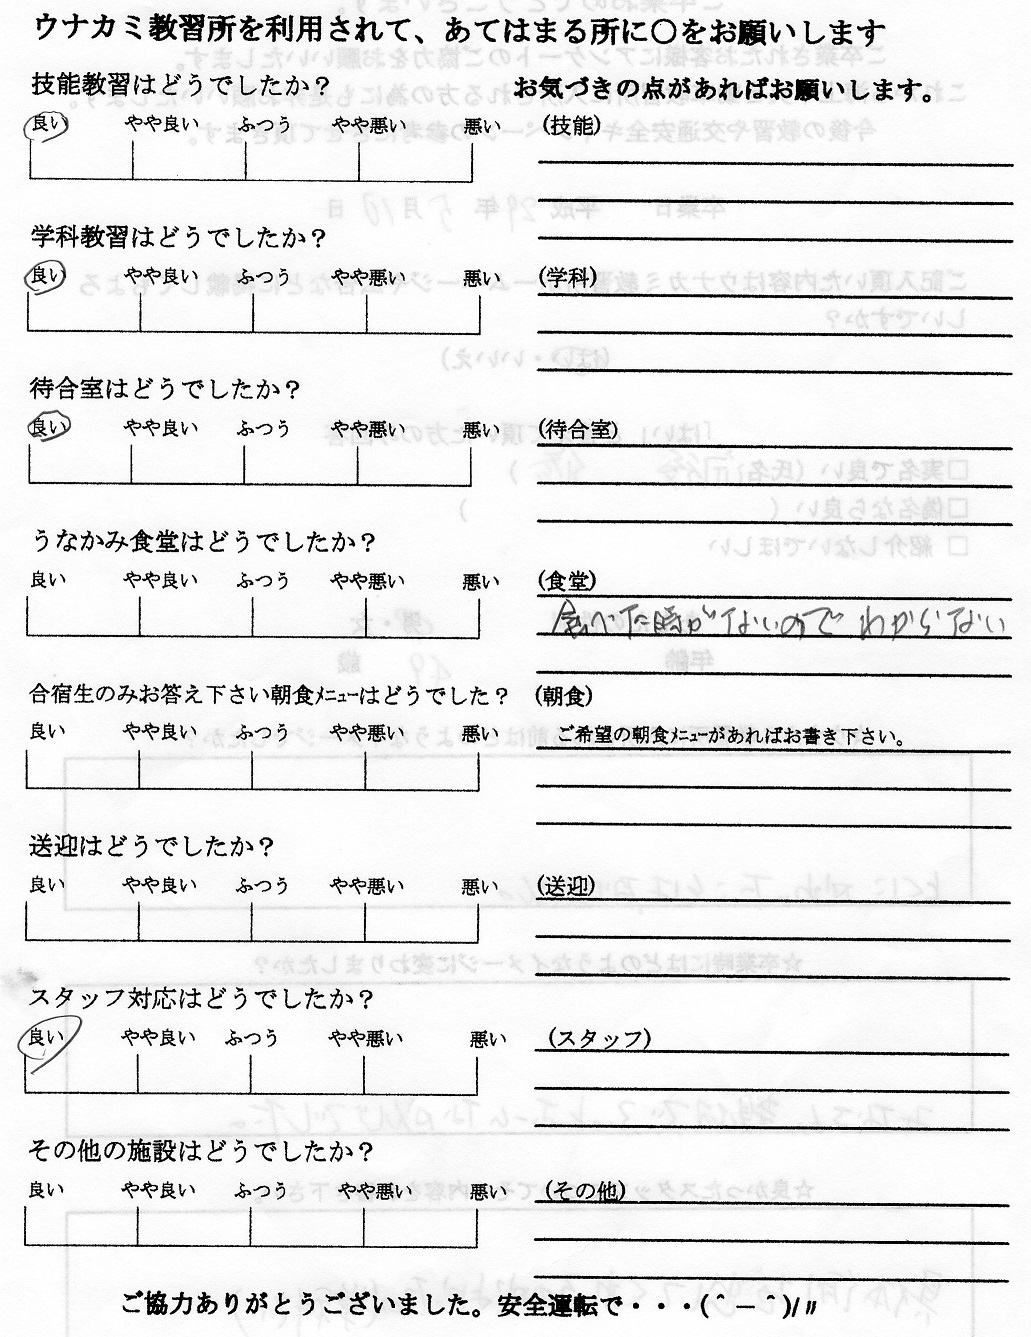 ウナカミ教習所を利用されて、あてはまる所に〇をお願いします
技能教習はどうでしたか？
お気づきの点があればお願いします。
良い やや良い ふつう やや悪い 悪い
(技能)
学科教習はどうでしたか？
良い やや良い ふつう やや悪い 悪い
(学科)
待合室はどうでしたか？
良い やや良い ふつう やや悪い 悪い
(待合室)
うなかみ食堂はどうでしたか？
良い やや良い ふつう やや悪い 悪い
(食堂)
食べた時がないのでわからない
合宿生のみお答え下さい朝食ﾒﾆｭｰはどうでした？
(朝食)
良い やや良い ふつう やや悪い 悪い
ご希望の朝食ﾒﾆｭｰがあればお書き下さい。
送迎はどうでしたか？
良い やや良い ふつう やや悪い 悪い
(送迎)
スタッフ対応はどうでしたか？
良い やや良い ふつう やや悪い 悪い
(スタッフ)
その他の施設はどうでしたか？
良い やや良い ふつう やや悪い 悪い
(その他)
ご協力ありがとうございました。安全運転で・・・(＾－＾)/〃